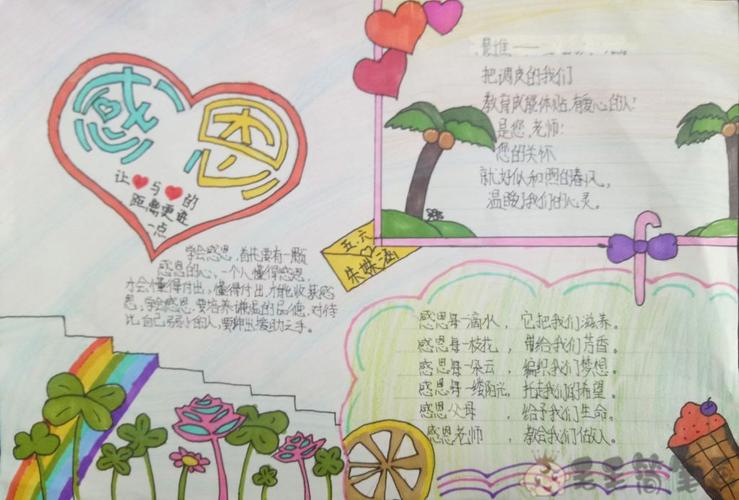 感恩
让❤与❤的
距离更进
一点
学会感恩，首先要有一颗
感恩的心，一个人懂得感恩，
才会懂得付出，懂得付出，才能收获感
恩，学会感恩，要培养谦逊的品德，对待
比自己弱小的人，要伸出援助之手。
是谁——
把调皮的我们
教育成能体贴，有爱心的人？
是您，老师！
您的关怀
就好似和煦的春风，
温暖了我们的心灵。
五.六
朱媄涵
感恩每一滴水，它把我们滋养。
感恩每一枝花，带给我们芳香。
感恩每一朵云，编织我们梦想。
感恩每一缕阳光，托起我们的希望。
感恩父母，给予我们生命。
感恩老师，教会我们做人。